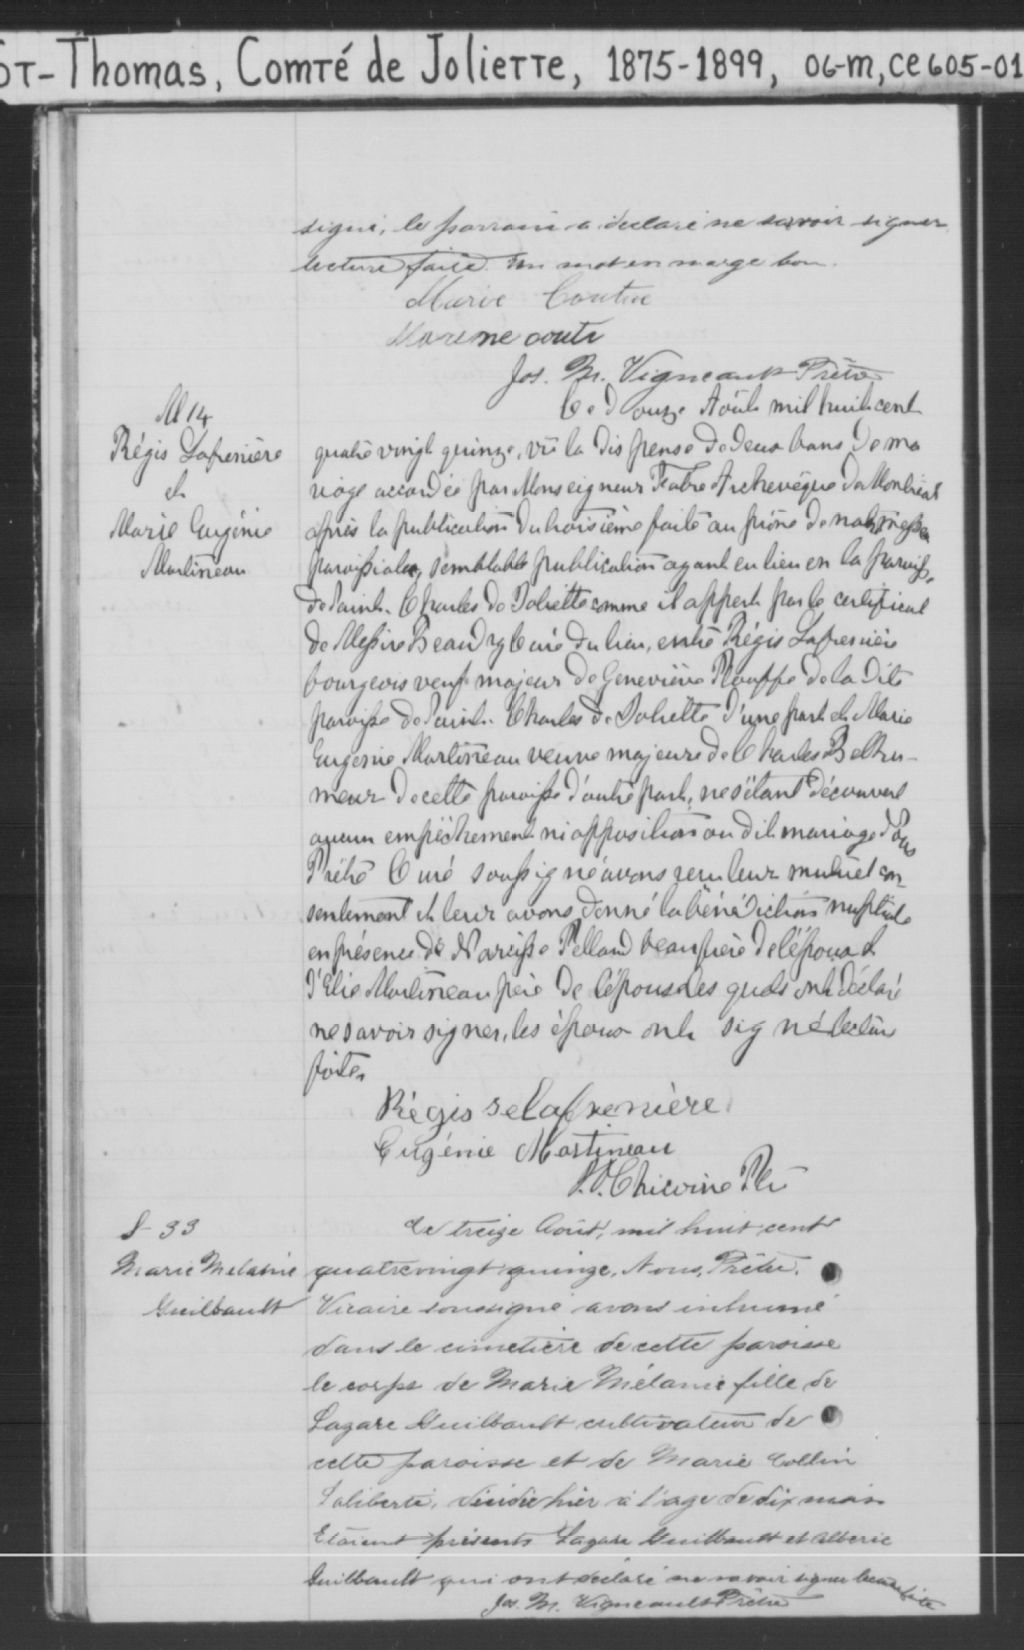 St-Thomas, Comté de Joliette, 1875-1899, 06-m, ce605-01
signé, le parrain a déclaré ne savoir signer
lecture faite. Un mot en marge bon.
Marie Coutu
Marie coutu
Jos. M. Vigneault Prêtre
M 14
Régis Lafrenière
et
Marie Eugénie
Martineau
Le Douze Août mil huit cent
quatre vingt quinze, vû la dispense de deux bans de ma
riage accordée par Monseigneur Fabre Archevêque de Montréal
après la publication du troisième faite au prône de notre messe
paroissiale, semblable publication ayant eu lieu en la paroisse
de Saint-Charles de Joliette comme il appert par le certificat
de Messire Beaudry Curé du lieu, entre Régis Lafrenière
bourgeois veuf majeur de Geneviève Plouffe de la dite
paroisse de Saint-Charles de Joliette d'une part et Marie
Eugénie Martineau veuve majeure de Charles Belhu-
meur de cette paroisse d'autre part, ne s'étant découvert
aucun empêchement ni opposition au dit mariage Nous
Prêtre Curé soussigné avons reçu leur mutuel con-
sentement et leur avons donné la bénédiction nuptiale
en présence de Narcisse Pelland beaufrère de l'époux et
d'Elie Martineau père de l'épouse lesquels ont déclaré
ne savoir signer, les époux ont signé lecture
faite.
Régis Lafrenière
Eugénie Martineau
Chicoine Ptre
S-33
Marie Mélanie
Guilbault
Le treize Août, mil huit cent
quatrevingt quinze, Nous, Prêtre,
Vicaire soussigné avons inhumé
dans le cimetière de cette paroisse
le corps de Marie Mélanie fille de
Lazare Guilbault cultivateur de
cette paroisse et de Marie Collin
Laliberté, décédée hier à l'age de dix mois
Etaient présents Lazare Guilbault et Alberic
Guilbault qui ont déclaré ne savoir signer lecture faite
Jos. M. Vigneault Prêtre